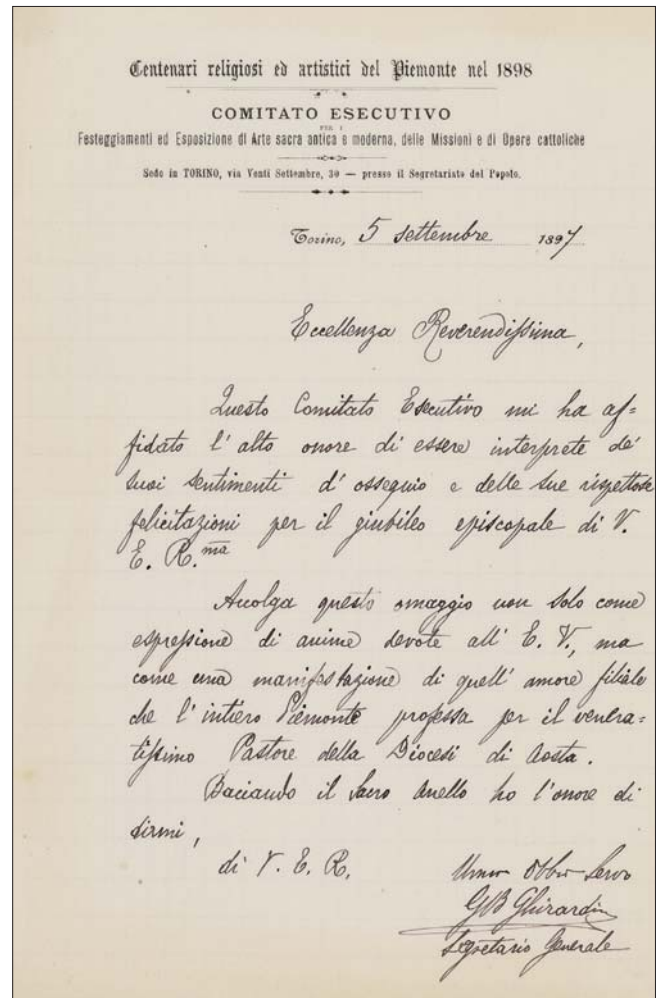 Centenari religiosi ed artistici del Piemonte nel 1898
COMITATO ESECUTIVO
PER I
Festeggiamenti ed Esposizione di Arte sacra antica e moderna, delle Missioni e di Opere cattoliche
Sede in TORINO, via Venti Settembre, 30 — presso il Segretariato del Popolo.
Torino, 5 settembre 1897
Eccellenza Reverendissima,
Questo Comitato Esecutivo mi ha af=
fidato l'alto onore di essere interprete de'
suoi sentimenti d'ossequio e delle sue rispettose
felicitazioni per il giubileo episcopale di V.
E. R.ma
Accolga questo omaggio non solo come
espressione di anime devote all' E. V., ma
come una manifestazione di quell' amore filiale
che l'intiero Piemonte professa per il venera=
tissimo Pastore della Diocesi di Aosta.
Baciando il Sacro Anello ho l'onore di
dirmi,
di V. E. R.
Umo Obbo Servo
GB Ghirardi
Segretario Generale